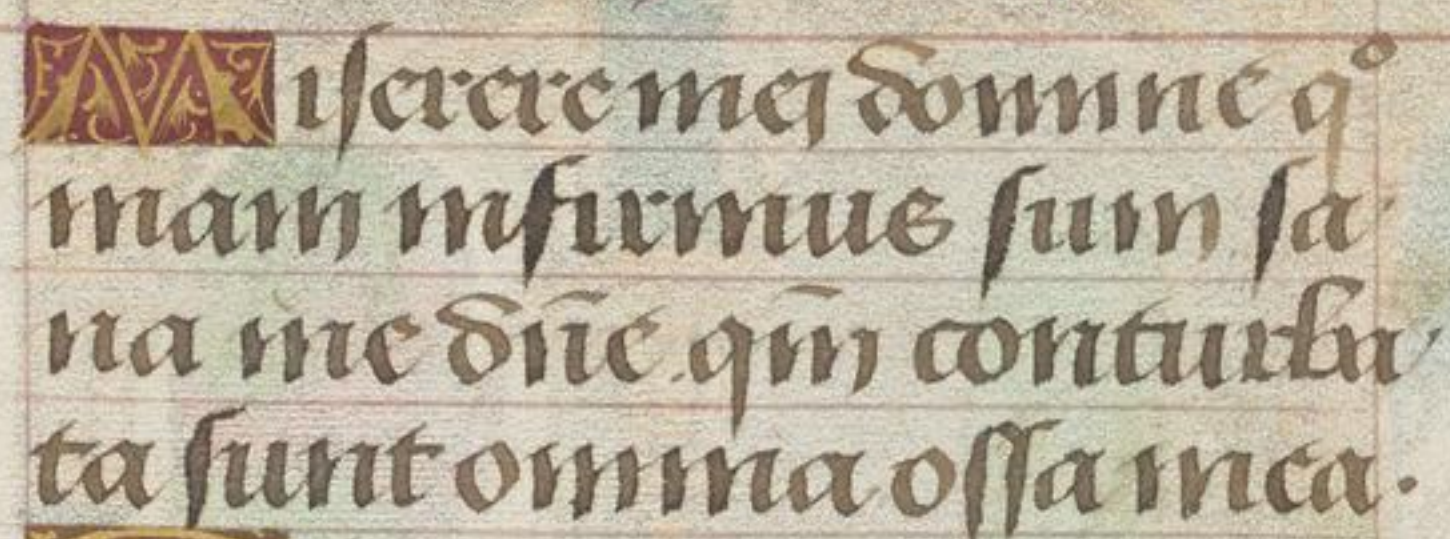 Miserere mei domine qº
niam infirmus sum sa
na me dn̄e qm̄ conturba
ta sunt omnia ossa mea.